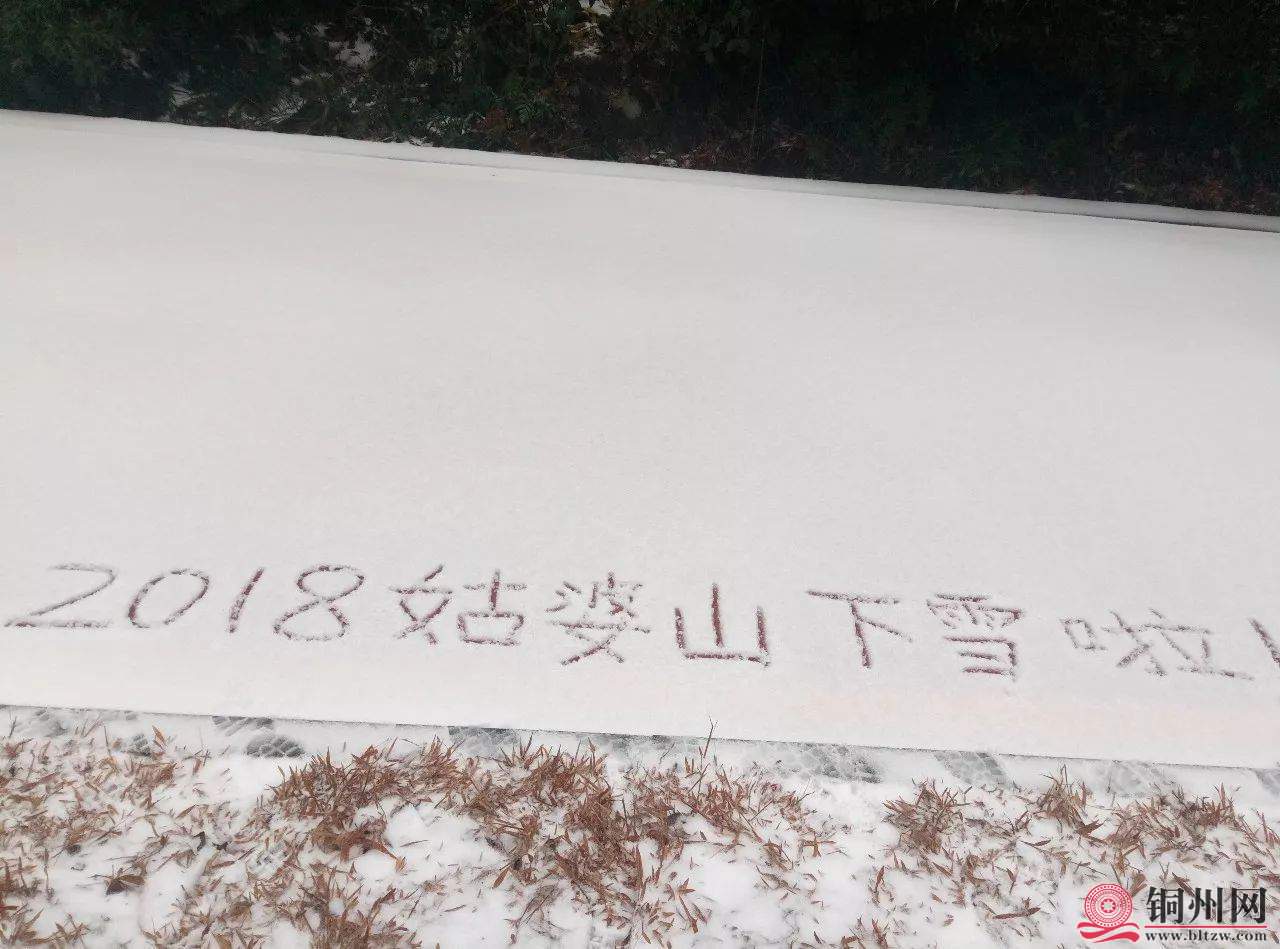 2018姑婆山下雪啦!
铜州网
www.bltzw.com